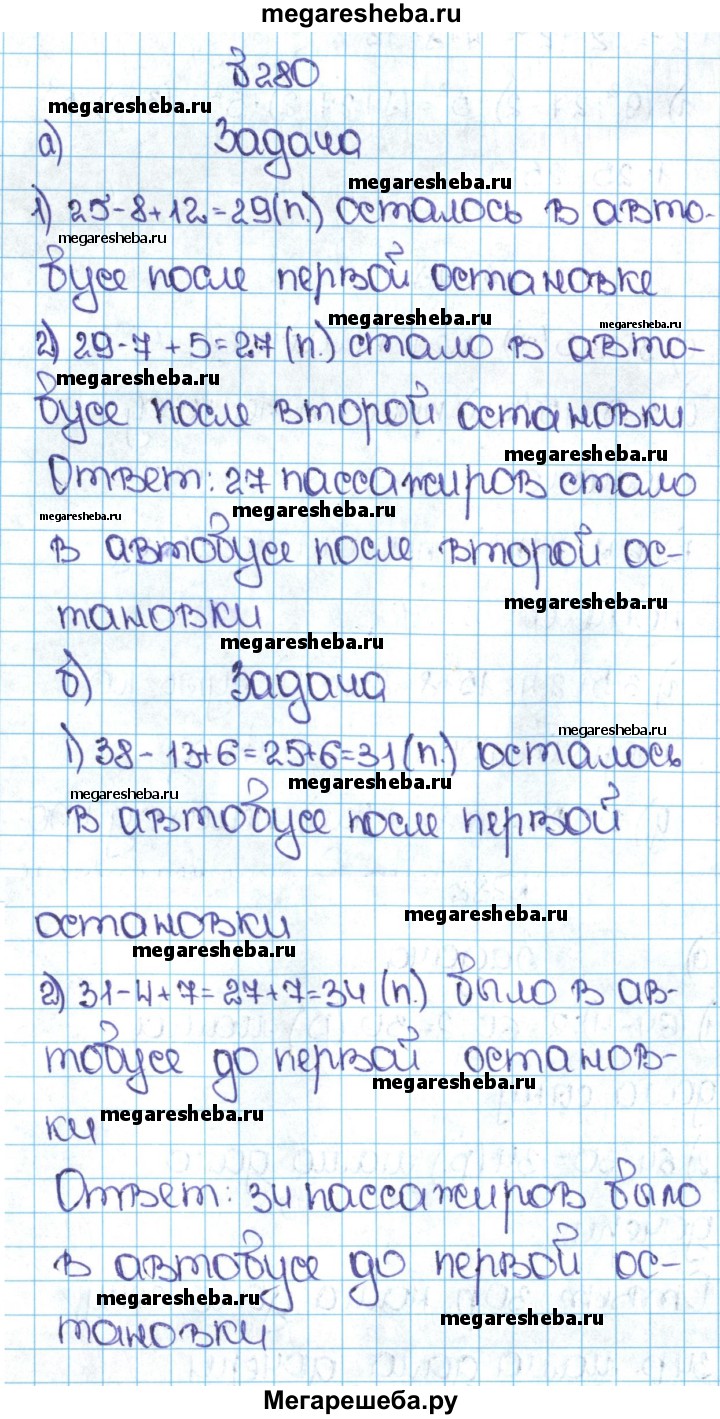 megaresheba.ru
№280
megaresheba.ru
а) Задача
megaresheba.ru
1) 25-8+12=29(п.) осталось в авто-
megaresheba.ru
бусе после первой остановке
megaresheba.ru
megaresheba.ru
2) 29-7+5=27(п.) стало в авто-
megaresheba.ru
бусе после второй остановки
megaresheba.ru
Ответ: 27 пассажиров стало
megaresheba.ru
megaresheba.ru
в автобусе после второй ос-
megaresheba.ru
тановки
megaresheba.ru
б) Задача
megaresheba.ru
1) 38-13+6=25+6=31(п.) осталось
megaresheba.ru
megaresheba.ru
в автобусе после первой
megaresheba.ru
остановки
megaresheba.ru
2) 31-4+7=27+7=34 (п.) было в ав-
тобусе до первой останов-
megaresheba.ru
megaresheba.ru
ки
Ответ: 34 пассажиров было
в автобусе до первой ос-
megaresheba.ru
megaresheba.ru
тановки
Мегарешеба.ру